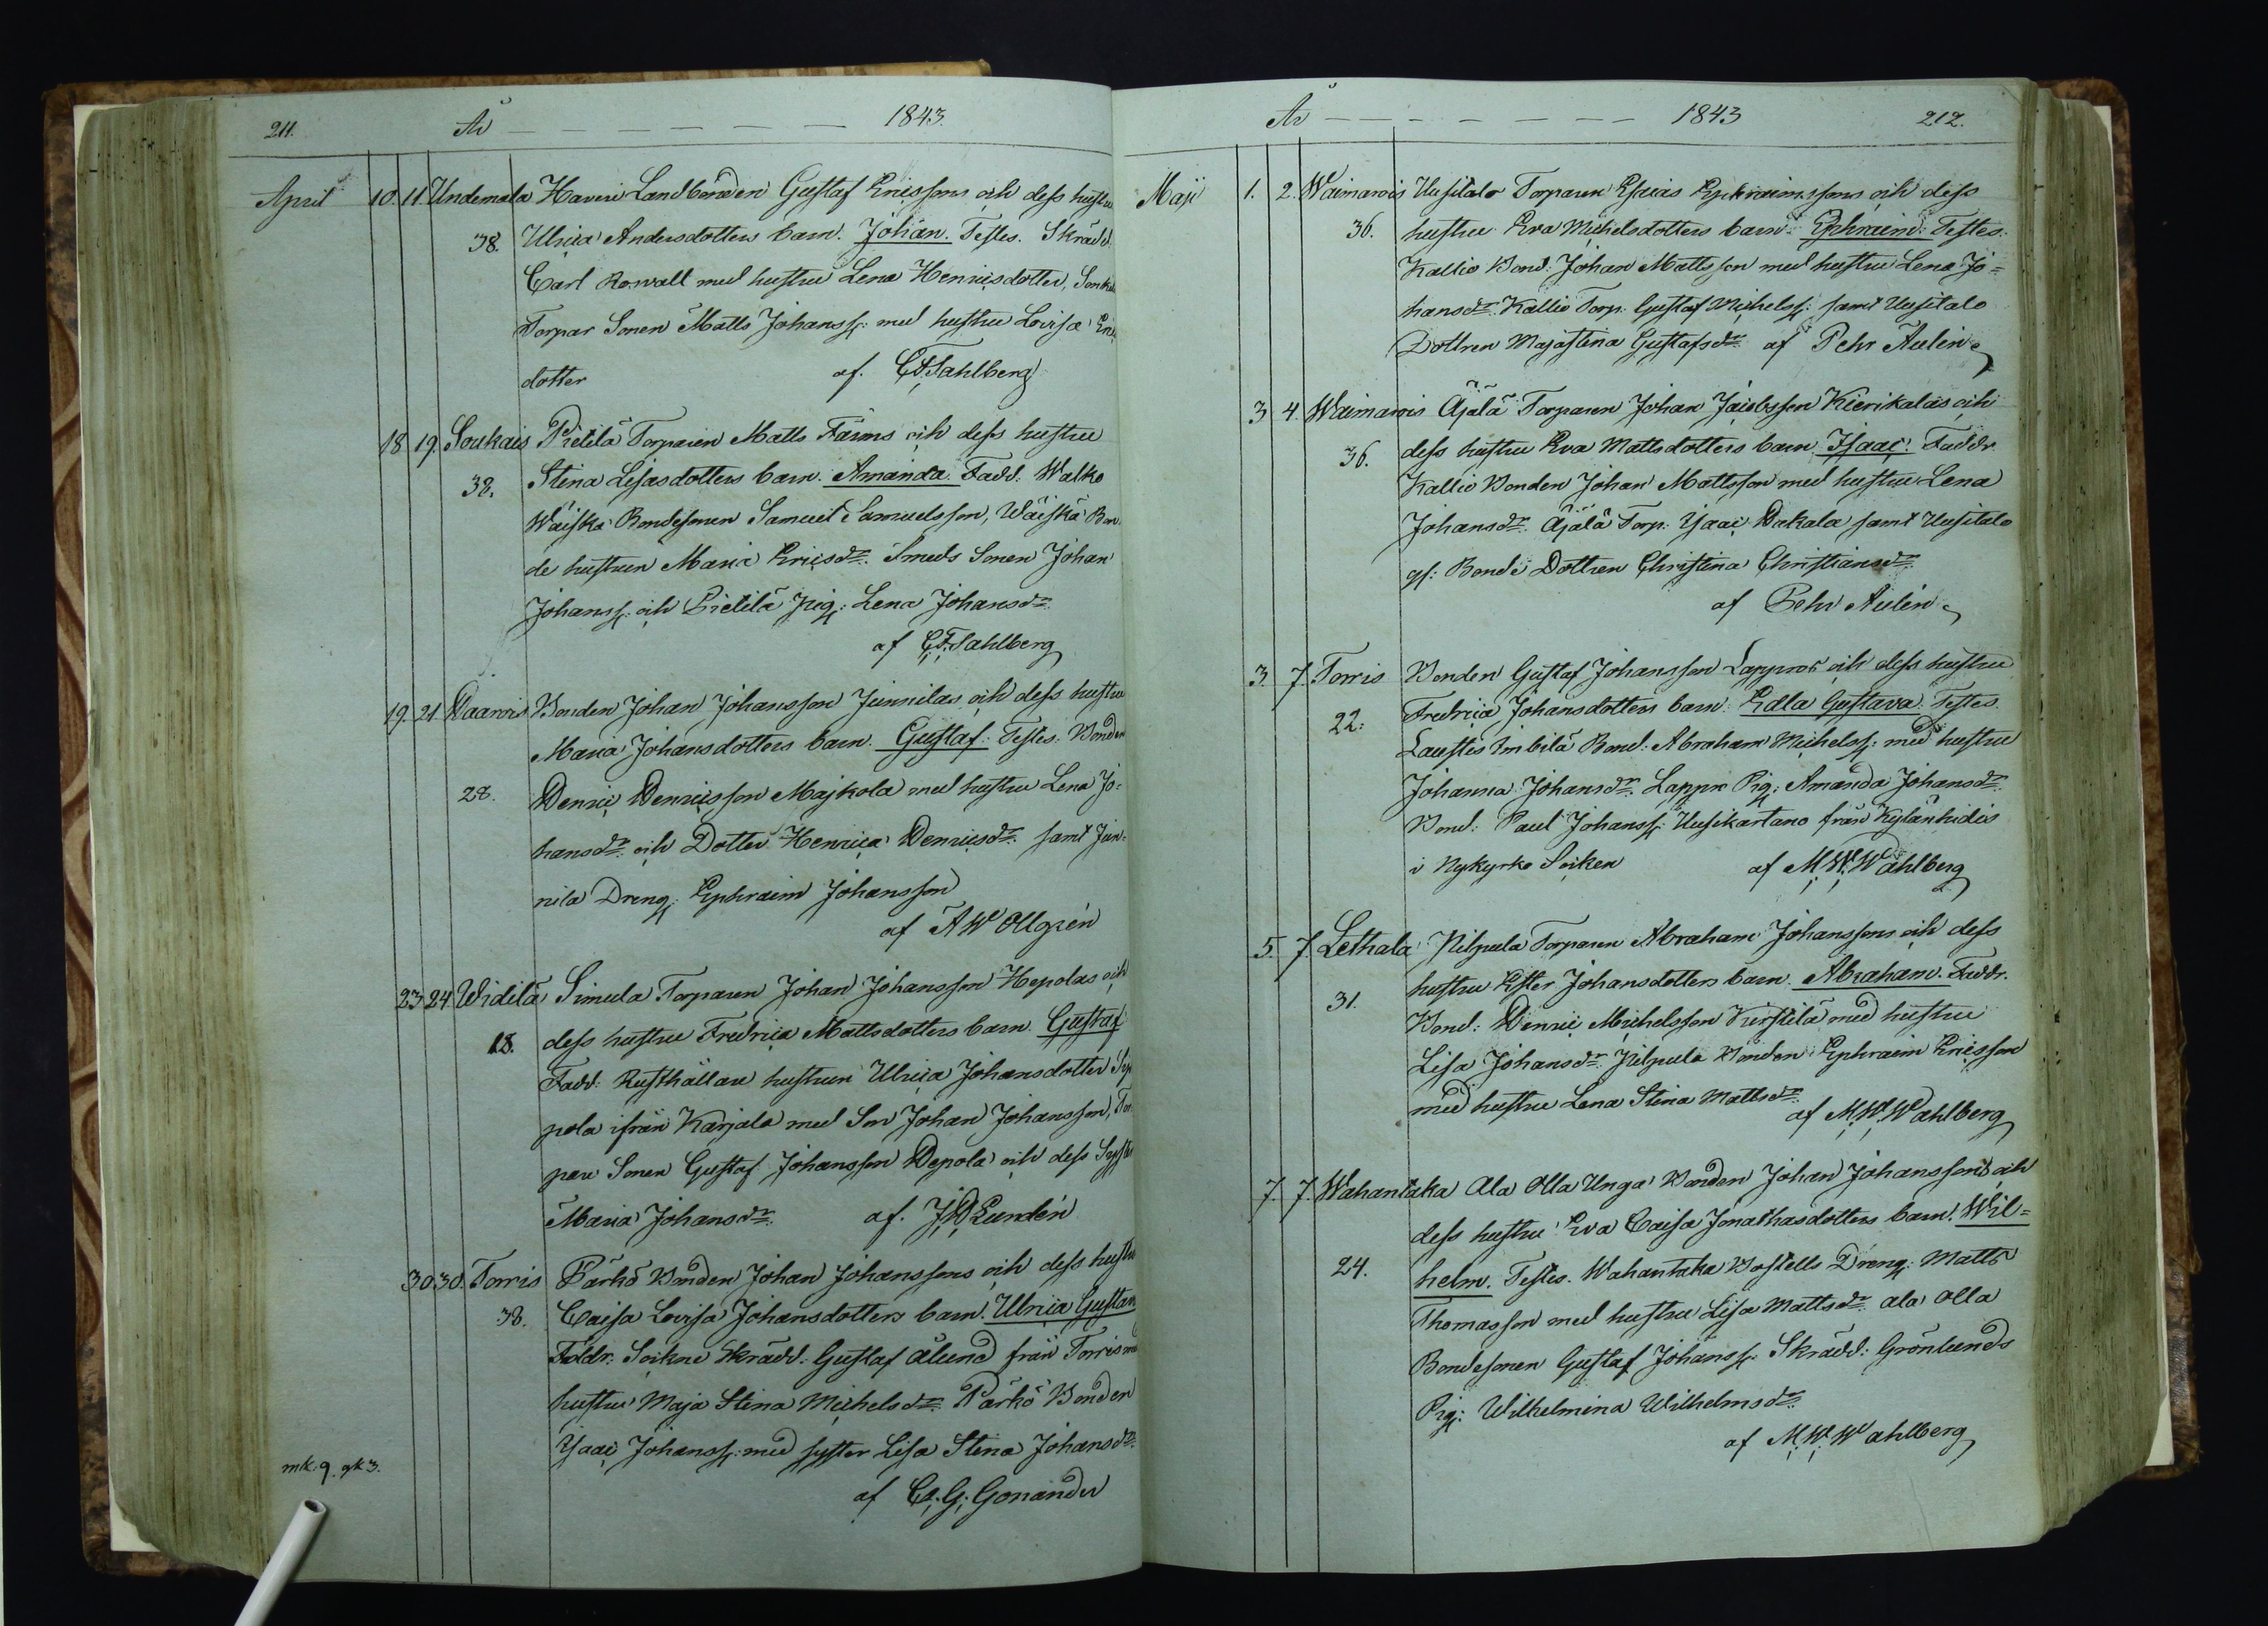 211. År — — — — — — — 1843.
April 10. 11. Undemala Haveri Landbonden Gustaf Ericssons och dess hustru
38. Ulrica Andersdotters barn. Johan. Testes. Skrädd.
Carl Rosvall med hustru Lena Henricsdotter,
Torpar Sonen Matts Johanss: med hustru Lovisa
dotter af. C F Sahlberg
18. 19. Soukais Pietilä Torparen Matts Färms och dess hustru
38. Stina Lisasdotters barn. Amanda. Fadd: Walko
Wäiskä Bondesonen Samuel Samuelsson, Wäiskä Bon-
de hustrun Maria Ericsdr. Smeds Sonen Johan
Johanss: och Pietilä Pig: Lena Johansdr.
af C.F. Sahlberg
19. 21. Waarois Bonden Johan Johansson Junnilas och dess hustru
Maria Johansdotters barn. Gustaf. Testes: Bonden
28. Henric Henricsson Majkola med hustru Lena Jo-
hansdr: och Dotter Henrica Henricsdr. samt Jun-
nila Dreng: Ephraim Johansson
af A W Ollgrén
23. 24. Widilä Simula Torparen Johan Johansson Hepolas och
18. dess hustru Fredrica Mattsdotters barn. Gustaf
Fadd: Rusthållare hustrun Ulrica Johansdotter
pola ifrån Karjala med Son Johan Johansson, Tor-
pare Sonen Gustaf Johansson Hepola och dess Syster
Maria Johansdr. af. J H Lundén
30. 30. Torris Pärkö Bonden Johan Johanssons och dess hustru
38. Caisa Lovisa Johansdotters barn. Ulrica Gustava
Faddr: Sockne Skrädd: Gustaf Ålund från Torris med
hustru Maja Stina Michelsdr. Pärkö Bonden
Isaac Johanss: med syster Lisa Stina Johansdr.
af C. G. Gonander
mk. 9. qk 3.
År — — — — — — — 1843 212.
Maji 1. 2. Waimarois Uusitalo Torparen Esaias Ephraimssons och dess
36. hustru Eva Michelsdotters barn. Ephraim. Testes.
Kallio Bond: Johan Mattsson med hustru Lena Jo-
hansdr. Kallio Torp. Gustaf Michelss: samt Uusitalo
Dottren Majastina Gustafsdr. af Pehr Aulin
3. 4. Waimarois Äjälä Torparen Johan Jacobsson Kierikalas och
36. dess hustru Eva Mattsdotters barn. Isaac. Faddr.
Kallio Bonden Johan Mattsson med hustru Lena
Johansdr. Äjälä Torp: Isaac Hakala samt Uusitalo
gs: Bonde Dottren Christina Christiansdr.
af Pehr Aulin
3. 7. Torris Bonden Gustaf Johansson Lappros och dess hustru
22. Fredrica Johansdotters barn. Edla Gustava. Testes.
Laustis Imbilä Bond: Abraham Michelss: med hustru
Johanna Johansdr. Lappr Pig: Amanda Johansdr.
Bond: Paul Johanss: Uusikartano från Kylänhidis
i Nykyrko Socken af M. W. Wahlberg
5. 7. Lethala Kilpula Torparen Abraham Johanssons och dess
31. hustru Ester Johansdotters barn. Abraham. Faddr.
Bond: Henric Michelsson Kirstilä med hustru
Lisa Johansdr. Kilpula Bonden Ephraim Ericsson
med hustru Lena Stina Mattsdr.
af M. W. Wahlberg
7. 7. Wahantaka Ala Olla Unga Bonden Johan Johanssons och
dess hustru Eva Caisa Jonathasdotters barn. Wil-
24. helm. Testes. Wahantaka Bostells Dreng: Matts
Thomasson med hustru Lisa Mattsdr. Ala Olla
Bondesonen Gustaf Johanss: Skrädd: Grönlunds
Pig: Wilhelmina Wilhelmsdr.
af M. W. Wahlberg